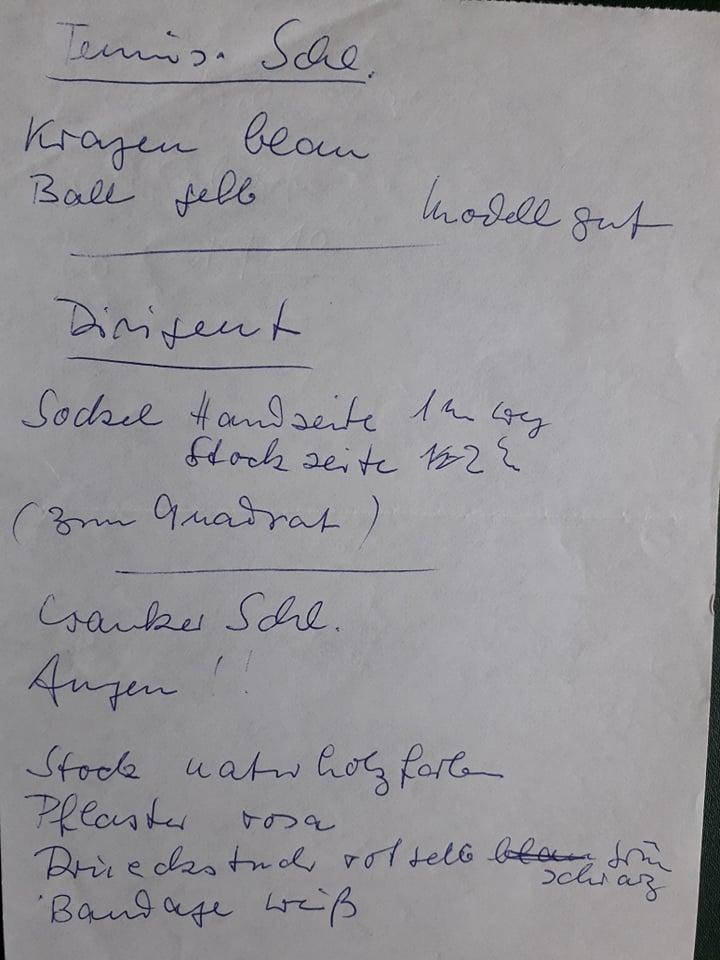 Tennis. Schl.
Kragen blau
Ball gelb
Modell gut
Dirigent
Sockel Handseite 1 weg
Stockseite
(zum Quadrat)
kranker Schl.
Augen !!
Stock naturholzfarben
Pflaster rosa
Dreieckstuch rot gelb blau grün
schwarz
Bandage weiß